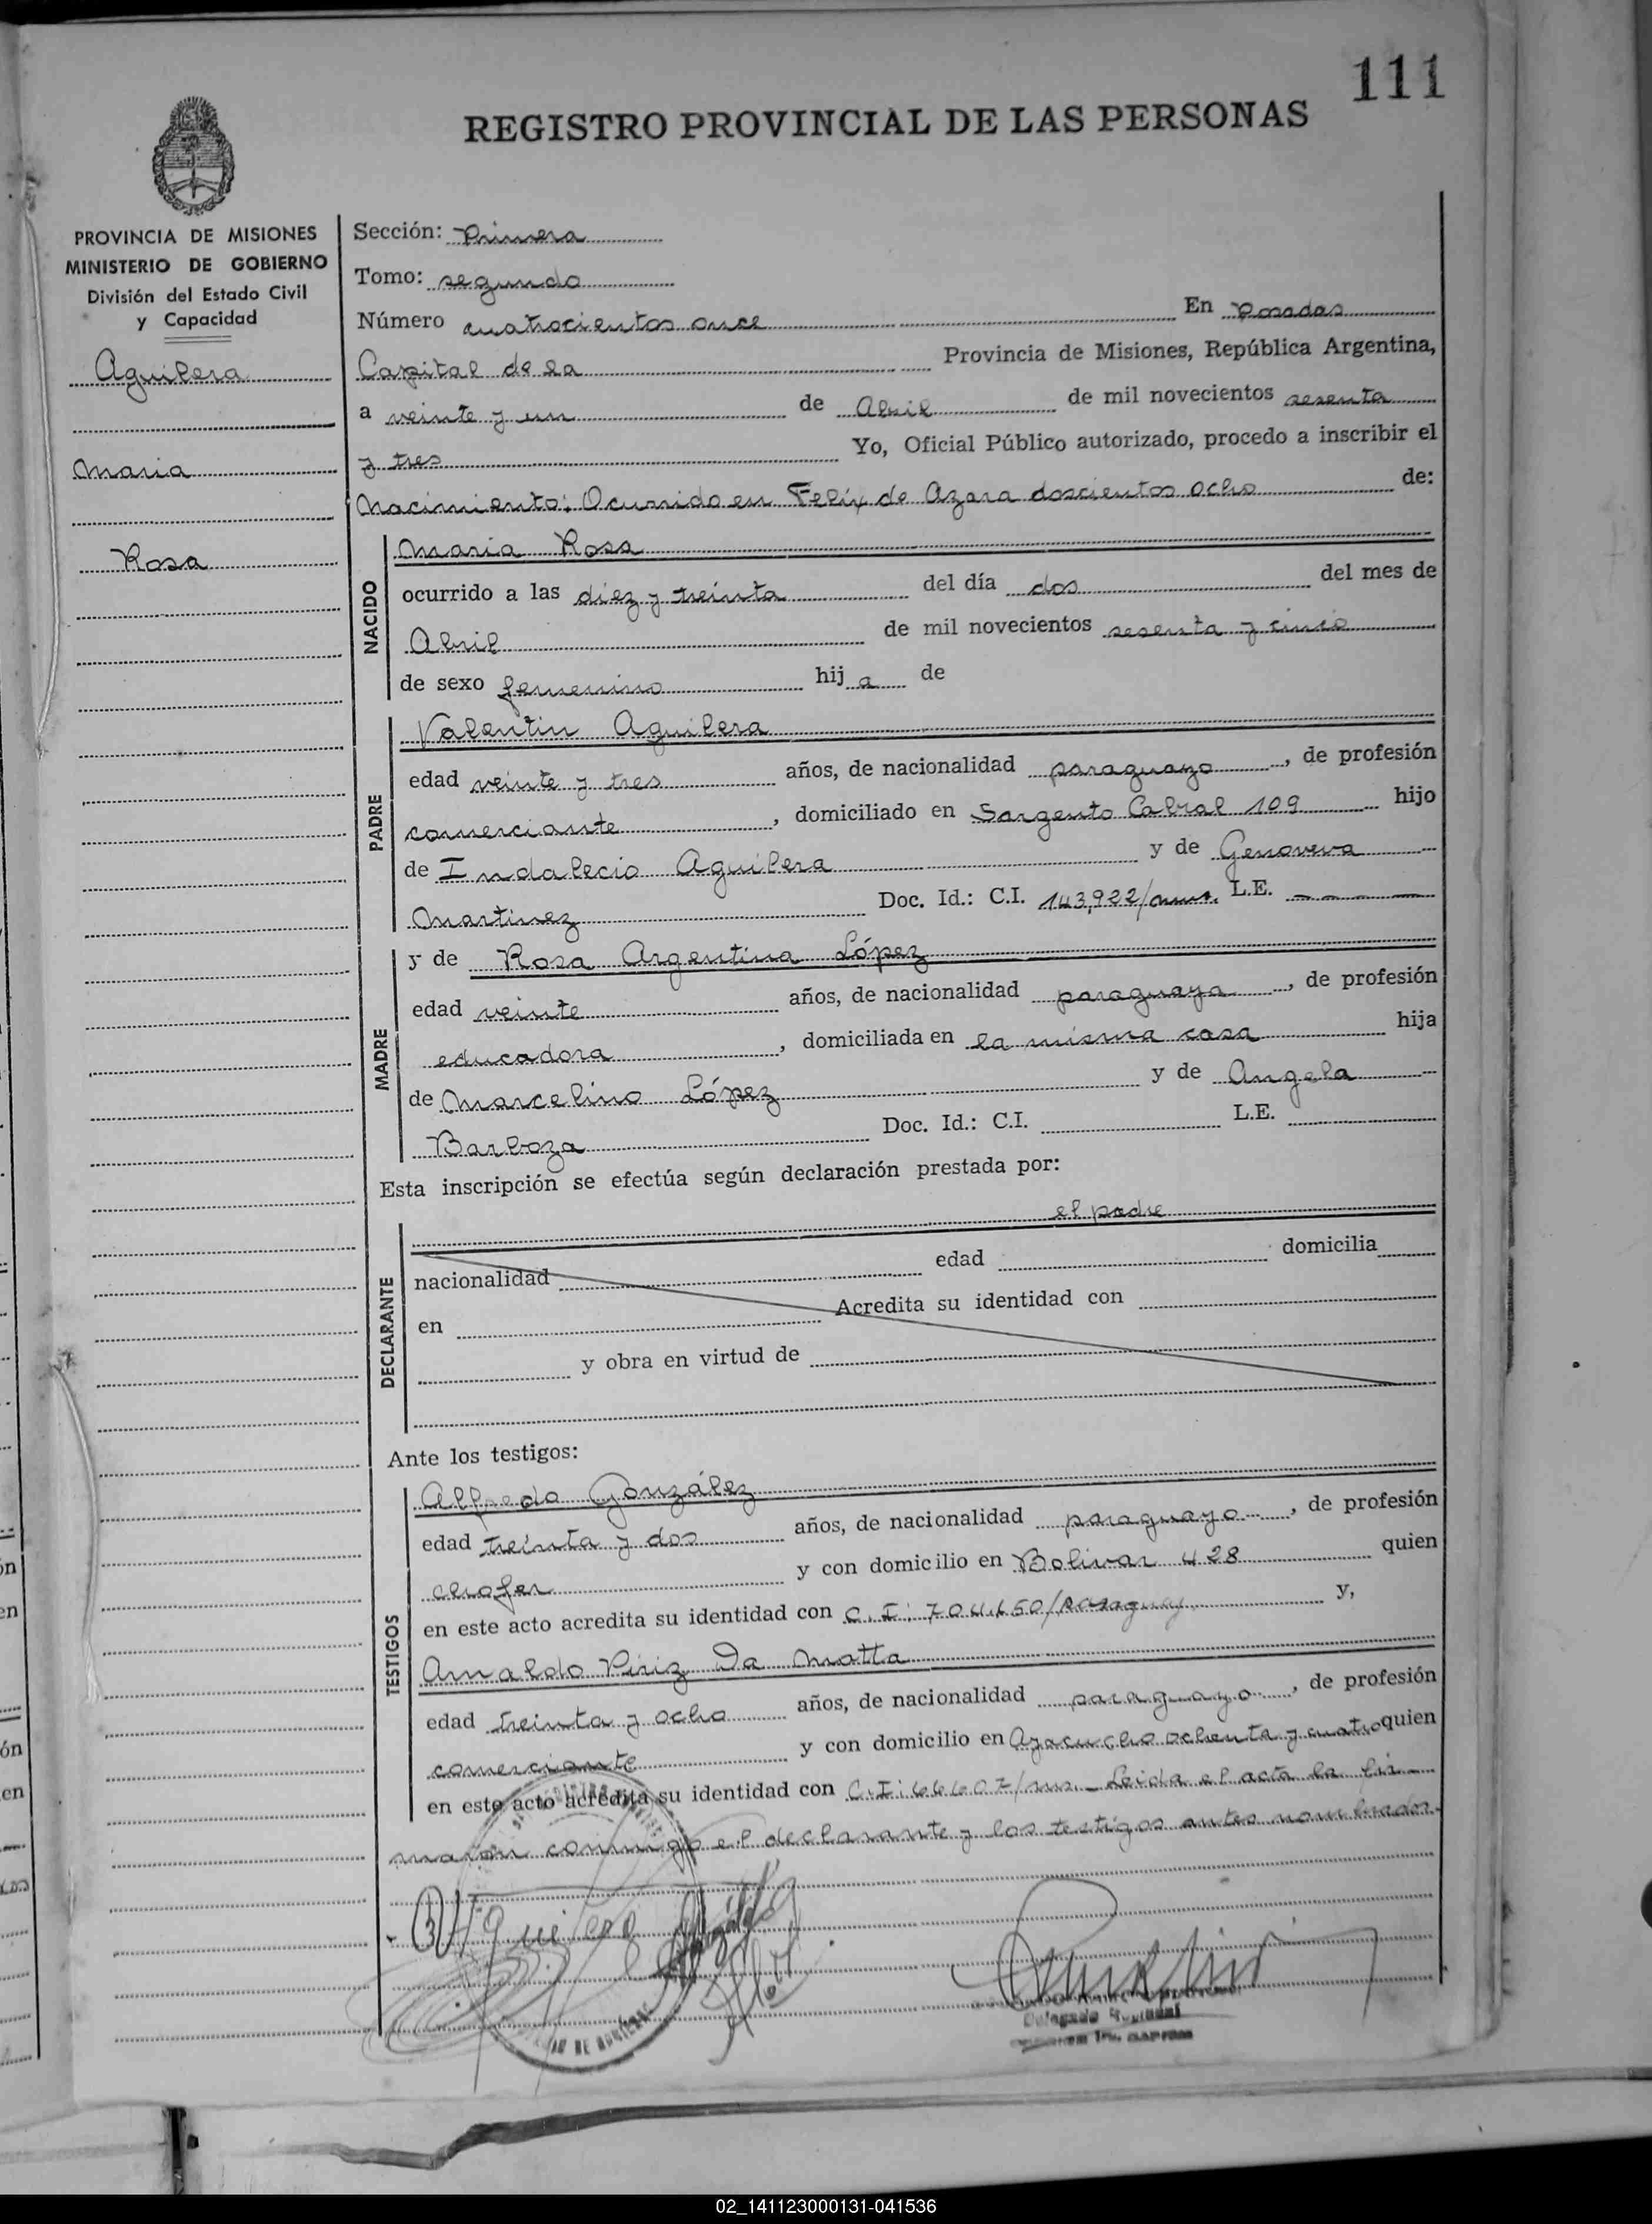 111
REGISTRO PROVINCIAL DE LAS PERSONAS
PROVINCIA DE MISIONES
MINISTERIO DE GOBIERNO
División del Estado Civil
y Capacidad
Aguilera
Maria
Rosa
Sección: Primera
Tomo: segundo
Número cuatrocientos once En Posadas
Capital de la Provincia de Misiones, República Argentina,
a veinte y un de Abril de mil novecientos sesenta
y tres Yo, Oficial Público autorizado, procedo a inscribir el
Nacimiento: Ocurrido en Felix de Azara doscientos ocho de:
NACIDO
Maria Rosa
ocurrido a las diez y treinta del día dos del mes de
Abril de mil novecientos sesenta y cinco
de sexo femenino hija de
PADRE
Valentin Aguilera
edad veinte y tres años, de nacionalidad paraguayo, de profesión
comerciante, domiciliado en Sargento Cabral 109 hijo
de Indalecio Aguilera y de Genoveva
Martinez Doc. Id.: C.I. 143,922/ L.E.
MADRE
y de Rosa Argentina López
edad veinte años, de nacionalidad paraguaya, de profesión
educadora, domiciliada en la misma casa hija
de Marcelino López y de Angela
Barboza Doc. Id.: C.I. L.E.
Esta inscripción se efectúa según declaración prestada por:
DECLARANTE
el padre
nacionalidad edad domicilia
en Acredita su identidad con
y obra en virtud de
Ante los testigos:
TESTIGOS
Alfredo González
edad treinta y dos años, de nacionalidad paraguayo, de profesión
chofer y con domicilio en Bolivar 428 quien
en este acto acredita su identidad con C.I: 704.650/Paraguay y,
Arnaldo Piriz Da Motta
edad treinta y ocho años, de nacionalidad paraguayo, de profesión
comerciante y con domicilio en Ayacucho ochenta y cuatro quien
en este acto acredita su identidad con C.I: 66607/ms. Leida el acta la fir-
maron conmigo el declarante y los testigos antes nombrados.
Aguilera
Delegado
02_141123000131-041536